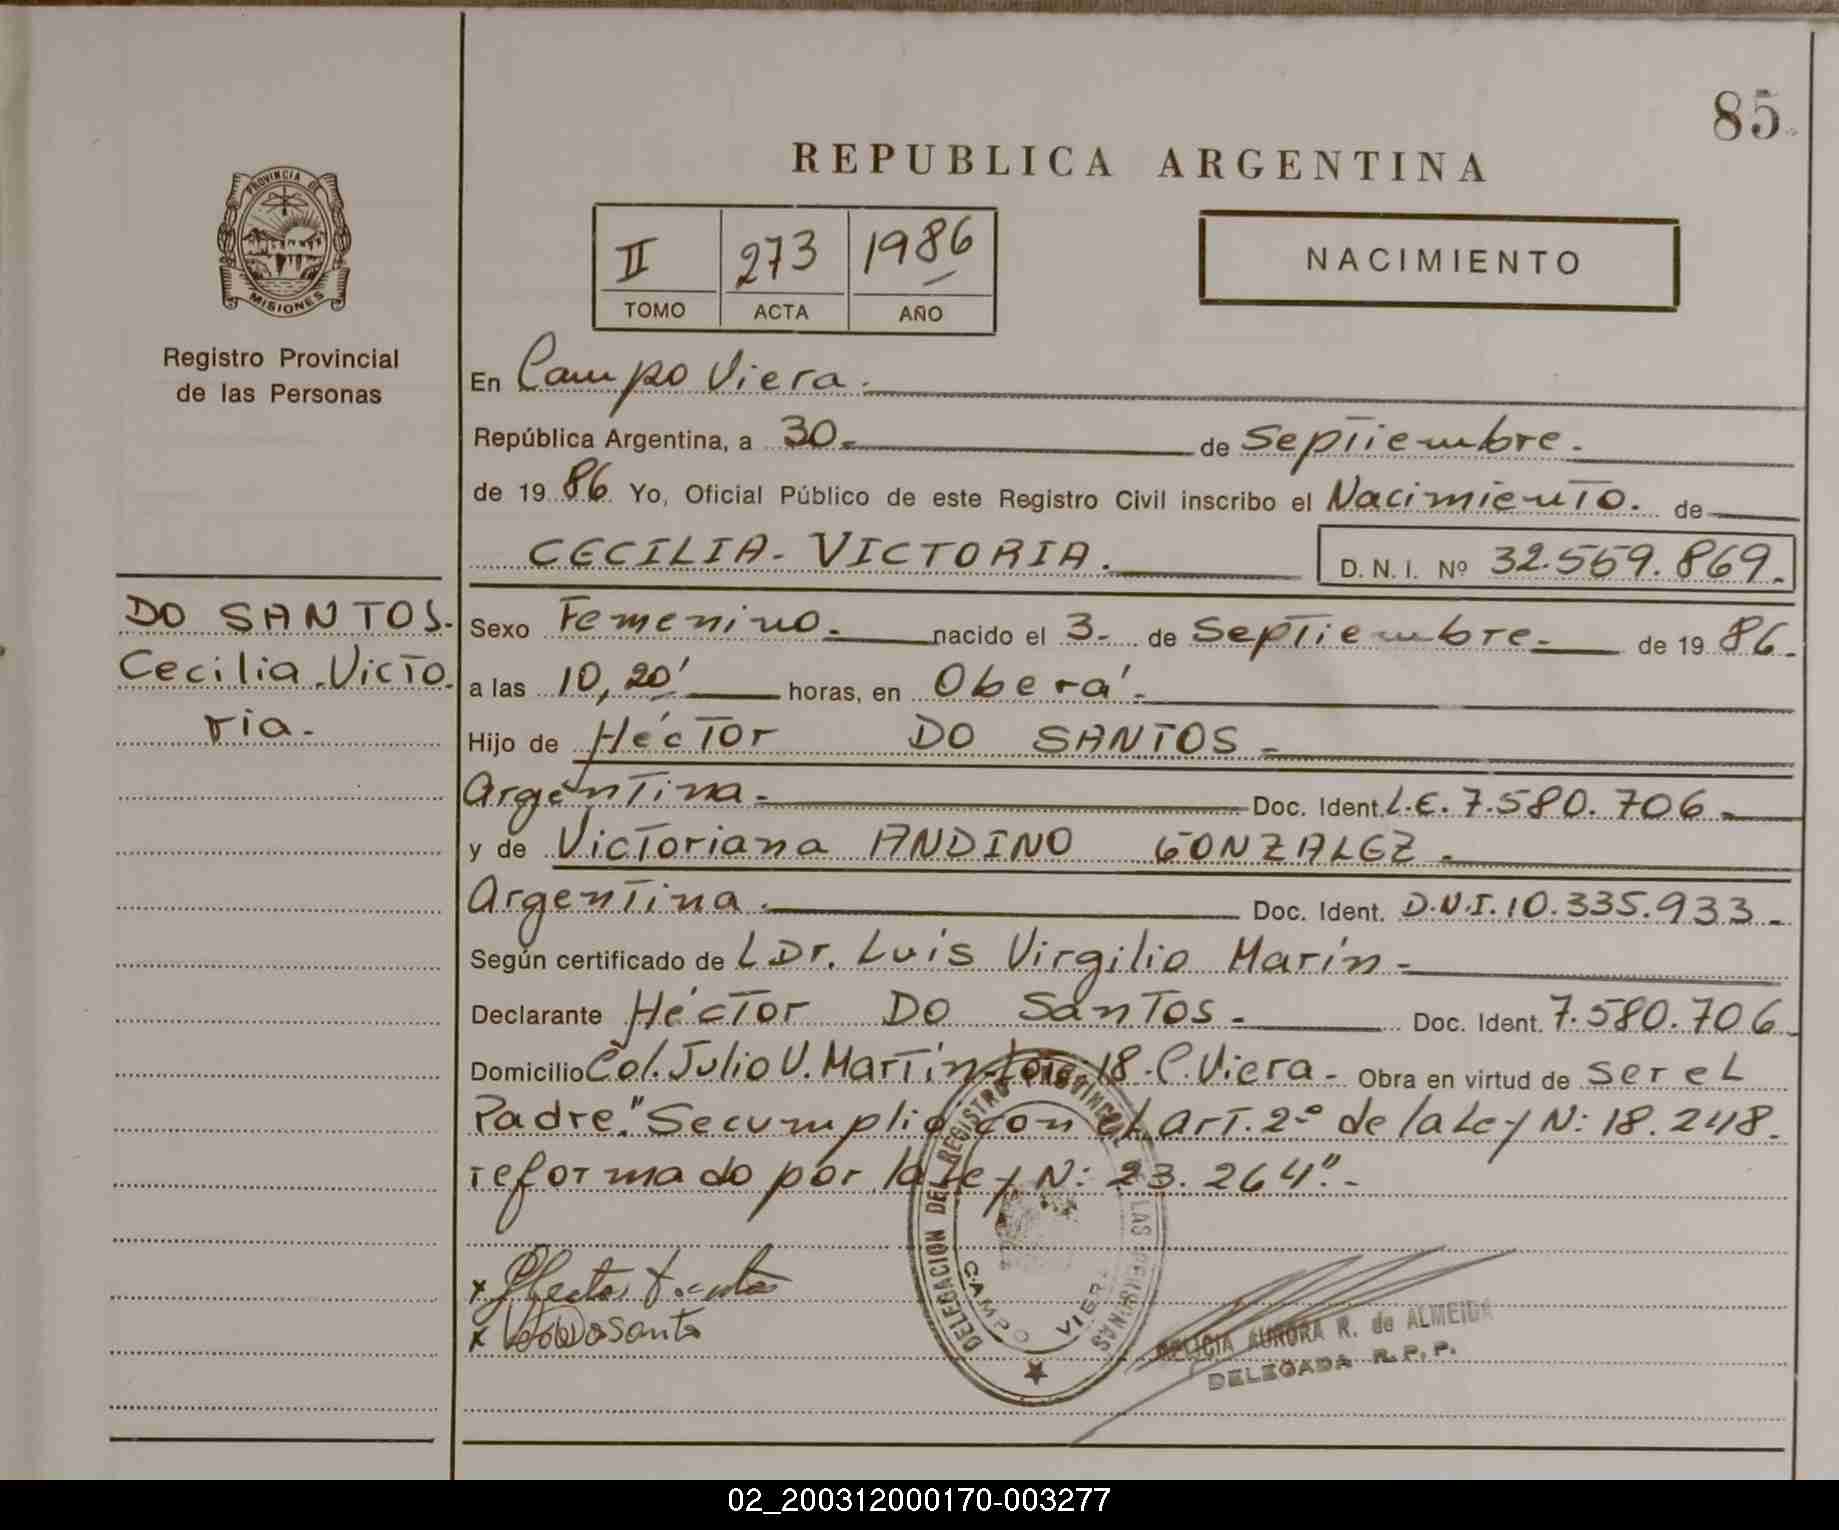 85
REPUBLICA ARGENTINA
PROVINCIA DE
MISIONES
Registro Provincial
de las Personas
II 273 1986
TOMO ACTA AÑO
NACIMIENTO
En Campo Viera.
República Argentina, a 30.- de Septiembre.
de 19 86 Yo, Oficial Público de este Registro Civil inscribo el Nacimiento. de
CECILIA-VICTORIA. D. N. I. Nº 32.559.869.
DO SANTOS.
Cecilia Victo
ria.-
Sexo Femenino.- nacido el 3.- de Septiembre.- de 19 86.
a las 10,20' horas, en Oberá.-
Hijo de Héctor DO SANTOS-
Argentina.- Doc. Ident. L.E. 7.580.706-
y de Victoriana ANDINO GONZALEZ.-
Argentina.- Doc. Ident. D.N.I. 10.335.933-
Según certificado de L Dr. Luis Virgilio Marín-
Declarante Héctor DO Santos.- Doc. Ident. 7.580.706
Domicilio Col. Julio U. Martin-Lote 18-C.Viera- Obra en virtud de ser el
Padre."Se cumplió con el art. 2º de la Ley N: 18.248.
reformado por la Ley N: 23.264".-
DELEGACION DEL REGISTRO PROVINCIAL DE LAS PERSONAS
CAMPO VIERA
AURORA R. de ALMEIDA
DELEGADA R.P.P.
02_200312000170-003277